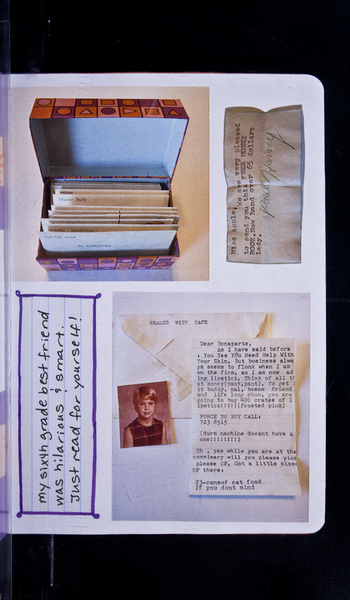 Miss Apple,
we are very pleased
to send you this FREE MONEY
BOOK.Now hand over 65 dollars
lady.
SEALED WITH TAPE
Dear Bonaparte,
As I have said before
, You Yes YOu Need Help With
Your Skin, But business alwa
ys seems to flunk when I am
on the firm, so I am now ad
ing lipstick. Think of all th
at money(pant,pant). So get
it buddy, pal, bosom friend
and life long chum, you are
going to buy 400 crates of l
ipstick!!!!!!(frosted pink)
FORCE TO BUY CALL:
723 8515
(durn machine doesnt have a
one!!!!!!!!)
Oh , yes while you are at the
commisary will you please pick
please UP. Got a little mixed
UP there.
23-cansof cat food
If you dont mind
my sixth grade best friend
was hilarious & smart.
Just read for yourself!